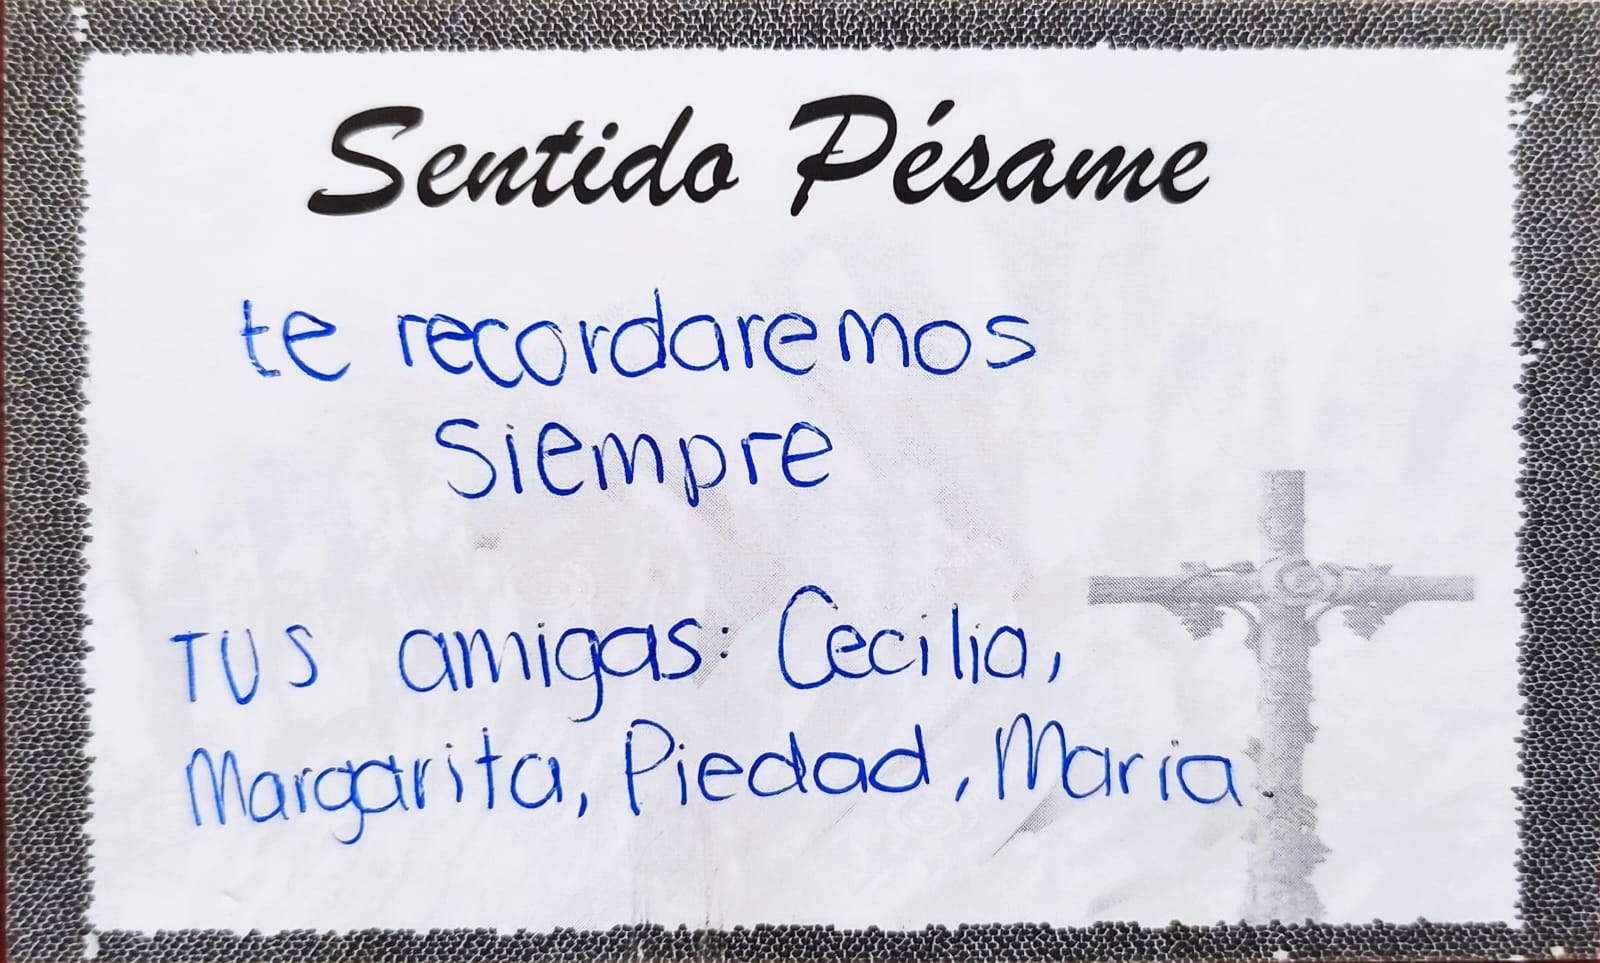 Sentido Pésame
te recordaremos
siempre
TUS amigas: Cecilia,
Margarita, Piedad, Maria.